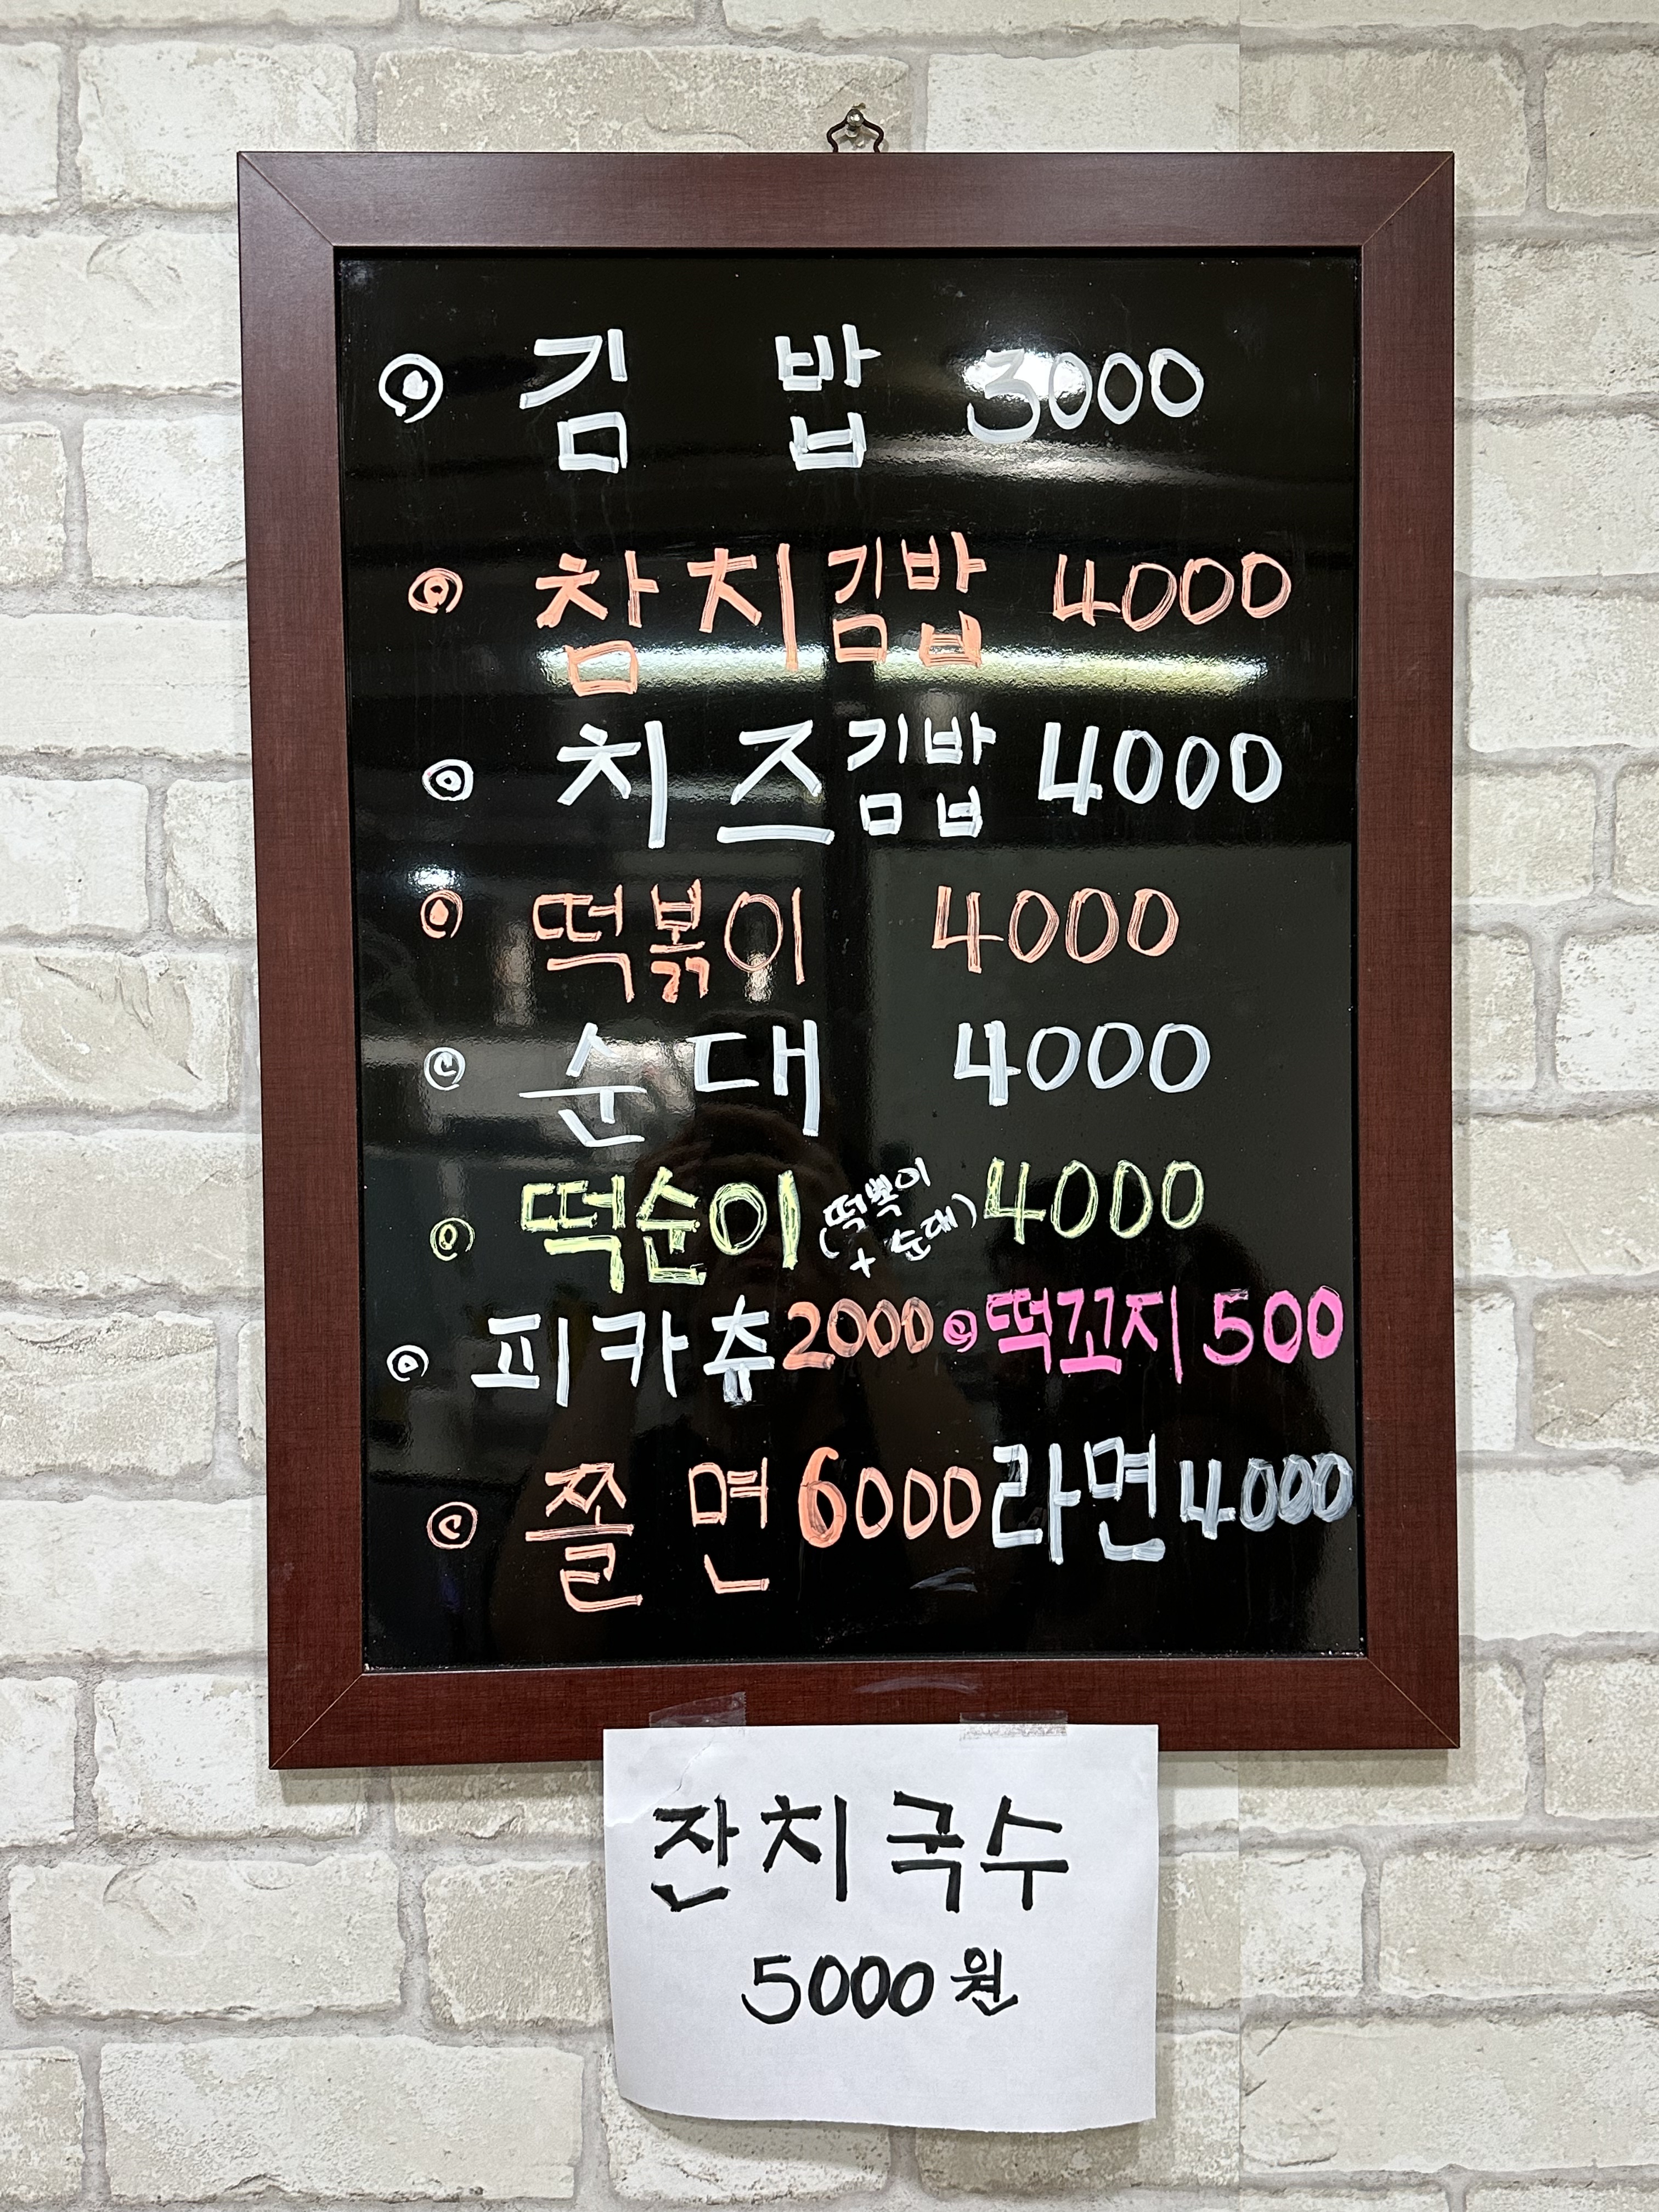 김 밥 3000
참치김밥 4000
치즈김밥 4000
떡볶이 4000
순대 4000
떡순이 (떡뽁이 + 순대) 4000
피카츄 2000 떡꼬지 500
쫄면 6000 라면 4000
잔치국수
5000원